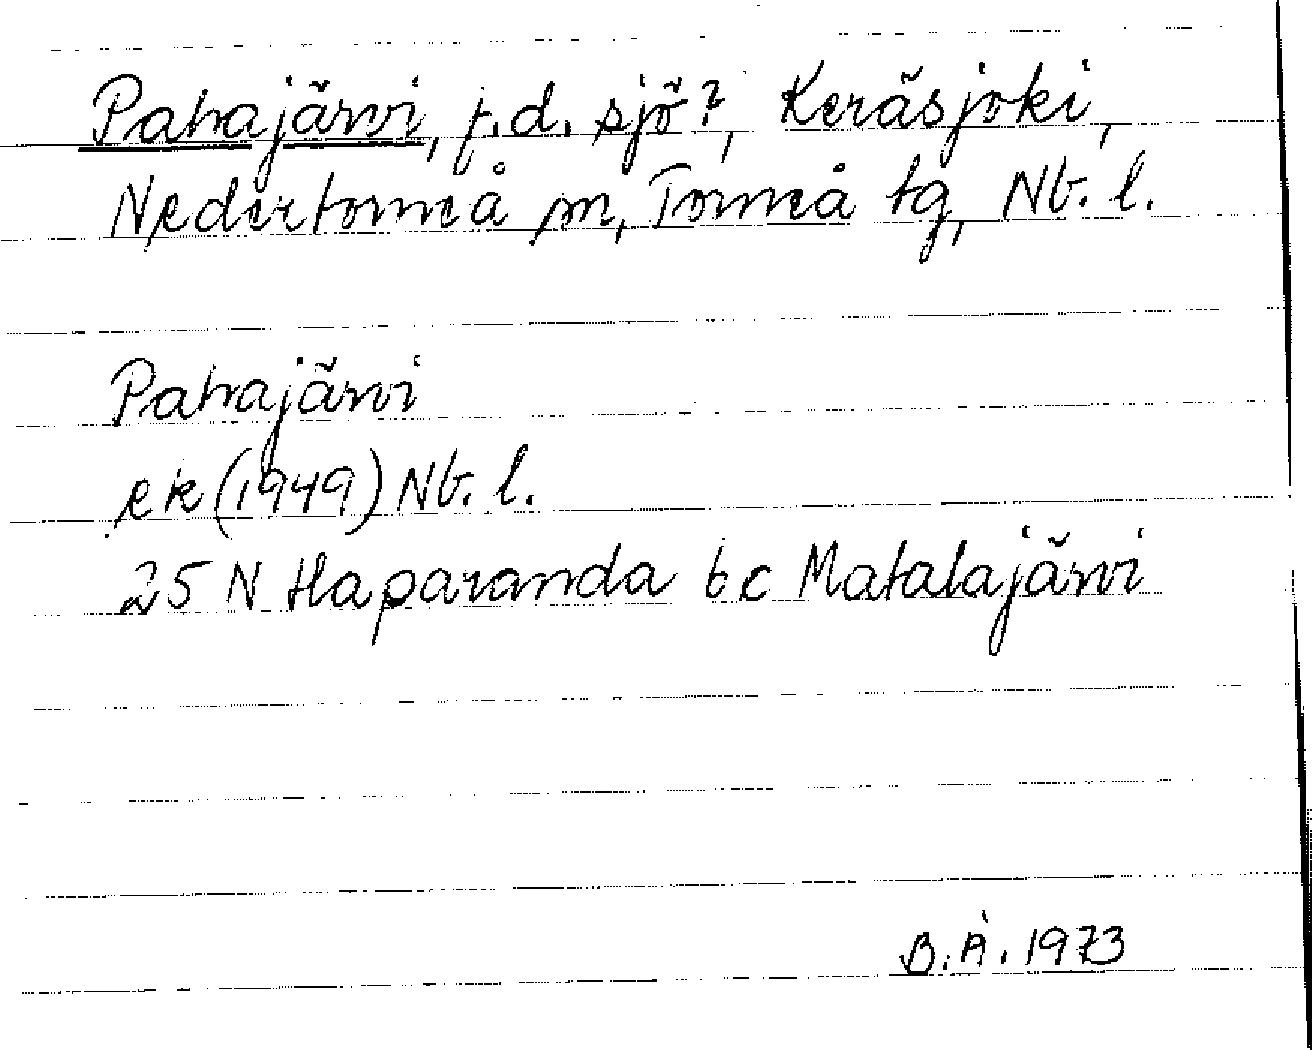 Pahajärvi, f.d. sjö?, Keräsjoki,
Nedertorneå sn, Torneå tg, Nb. l.
Pahajärvi
ek (1949) Nb. l.
25 N Haparanda bc Matalajärvi
B.Å. 1973